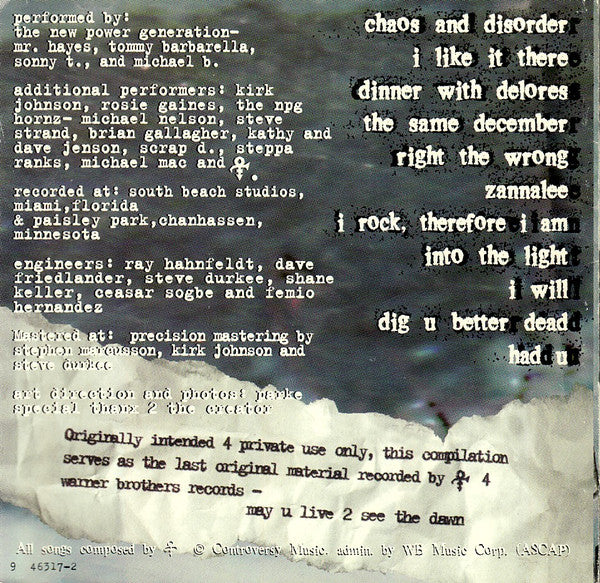 performed by:
the new power generation-
mr. hayes, tommy barbarella,
sonny t., and michael b.
additional performers: kirk
johnson, rosie gaines, the npg
hornz- michael nelson, steve
strand, brian gallagher, kathy and
dave jenson, scrap d., steppa
ranks, michael mac and .
recorded at: south beach studios,
miami,florida
& paisley park,chanhassen,
minnesota
engineers: ray hahnfeldt, dave
friedlander, steve durkee, shane
keller, ceasar sogbe and femio
hernandez
Mastered at: precision mastering by
stephen marcusson, kirk johnson and
steve durkee
art direction and photos: parke
special thanx 2 the creator
chaos and disorder
i like it there
dinner with delores
the same december
right the wrong
zannalee
i rock, therefore i am
into the light
i will
dig u better dead
had u
Originally intended 4 private use only, this compilation
serves as the last original material recorded by 4
warner brothers records -
may u live 2 see the dawn
All songs composed by © Controversy Music. admin. by WB Music Corp. (ASCAP)
9 46317-2